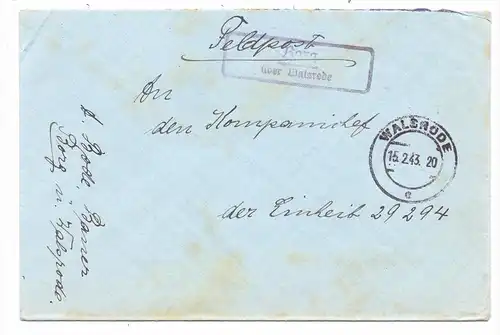 Feldpost
Borg
über Walsrode
An
den Kompaniechef
WALSRODE
15.2.43. 20
e
der Einheit 29294
A. Bode, Bauer
Borg ü. Walsrode.